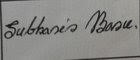 Subhasis Basu.